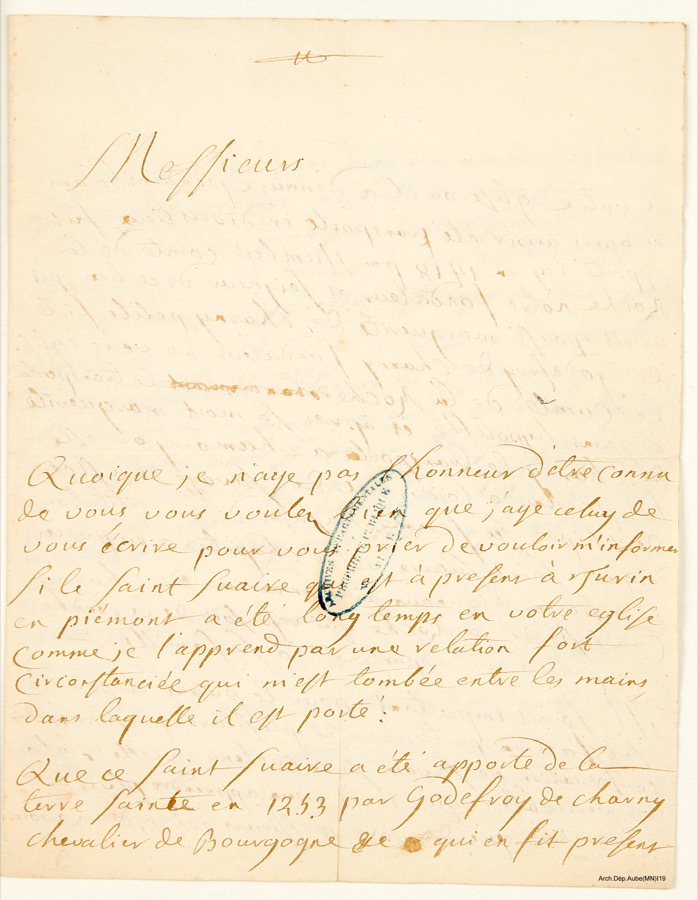 Messieurs
Quoique je n'aye pas l'honneur d'etre connu
de vous vous voulez bien que j'aye celuy de
vous écrire pour vous prier de vouloir m'informer
si le saint suaire qui est à present à Turin
en piémont a été long temps en votre eglise
comme je l'apprend par une relation fort
circonstanciée qui m'est tombée entre les mains,
dans laquelle il est porté:
Que ce saint suaire a été apporté de la
terre sainte en 1253 par Godefroy de charny
chevalier de Bourgogne qui en fit present
Arch.Dép.Aube(MN)I19